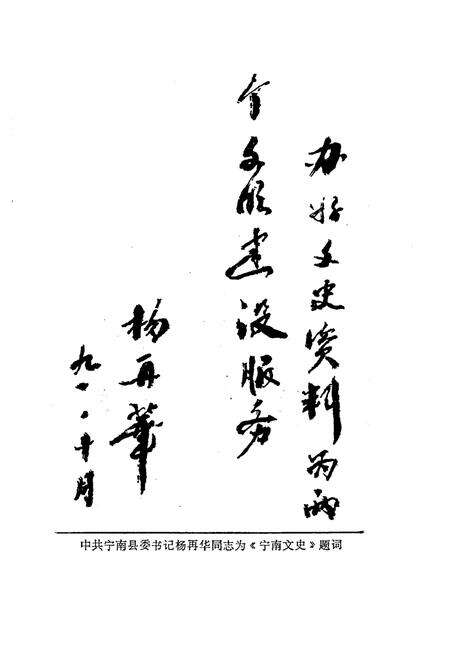 办好文史资料为两
个文明建设服务
杨再华
九〇·十月
中共宁南县委书记杨再华同志为《宁南文史》题词